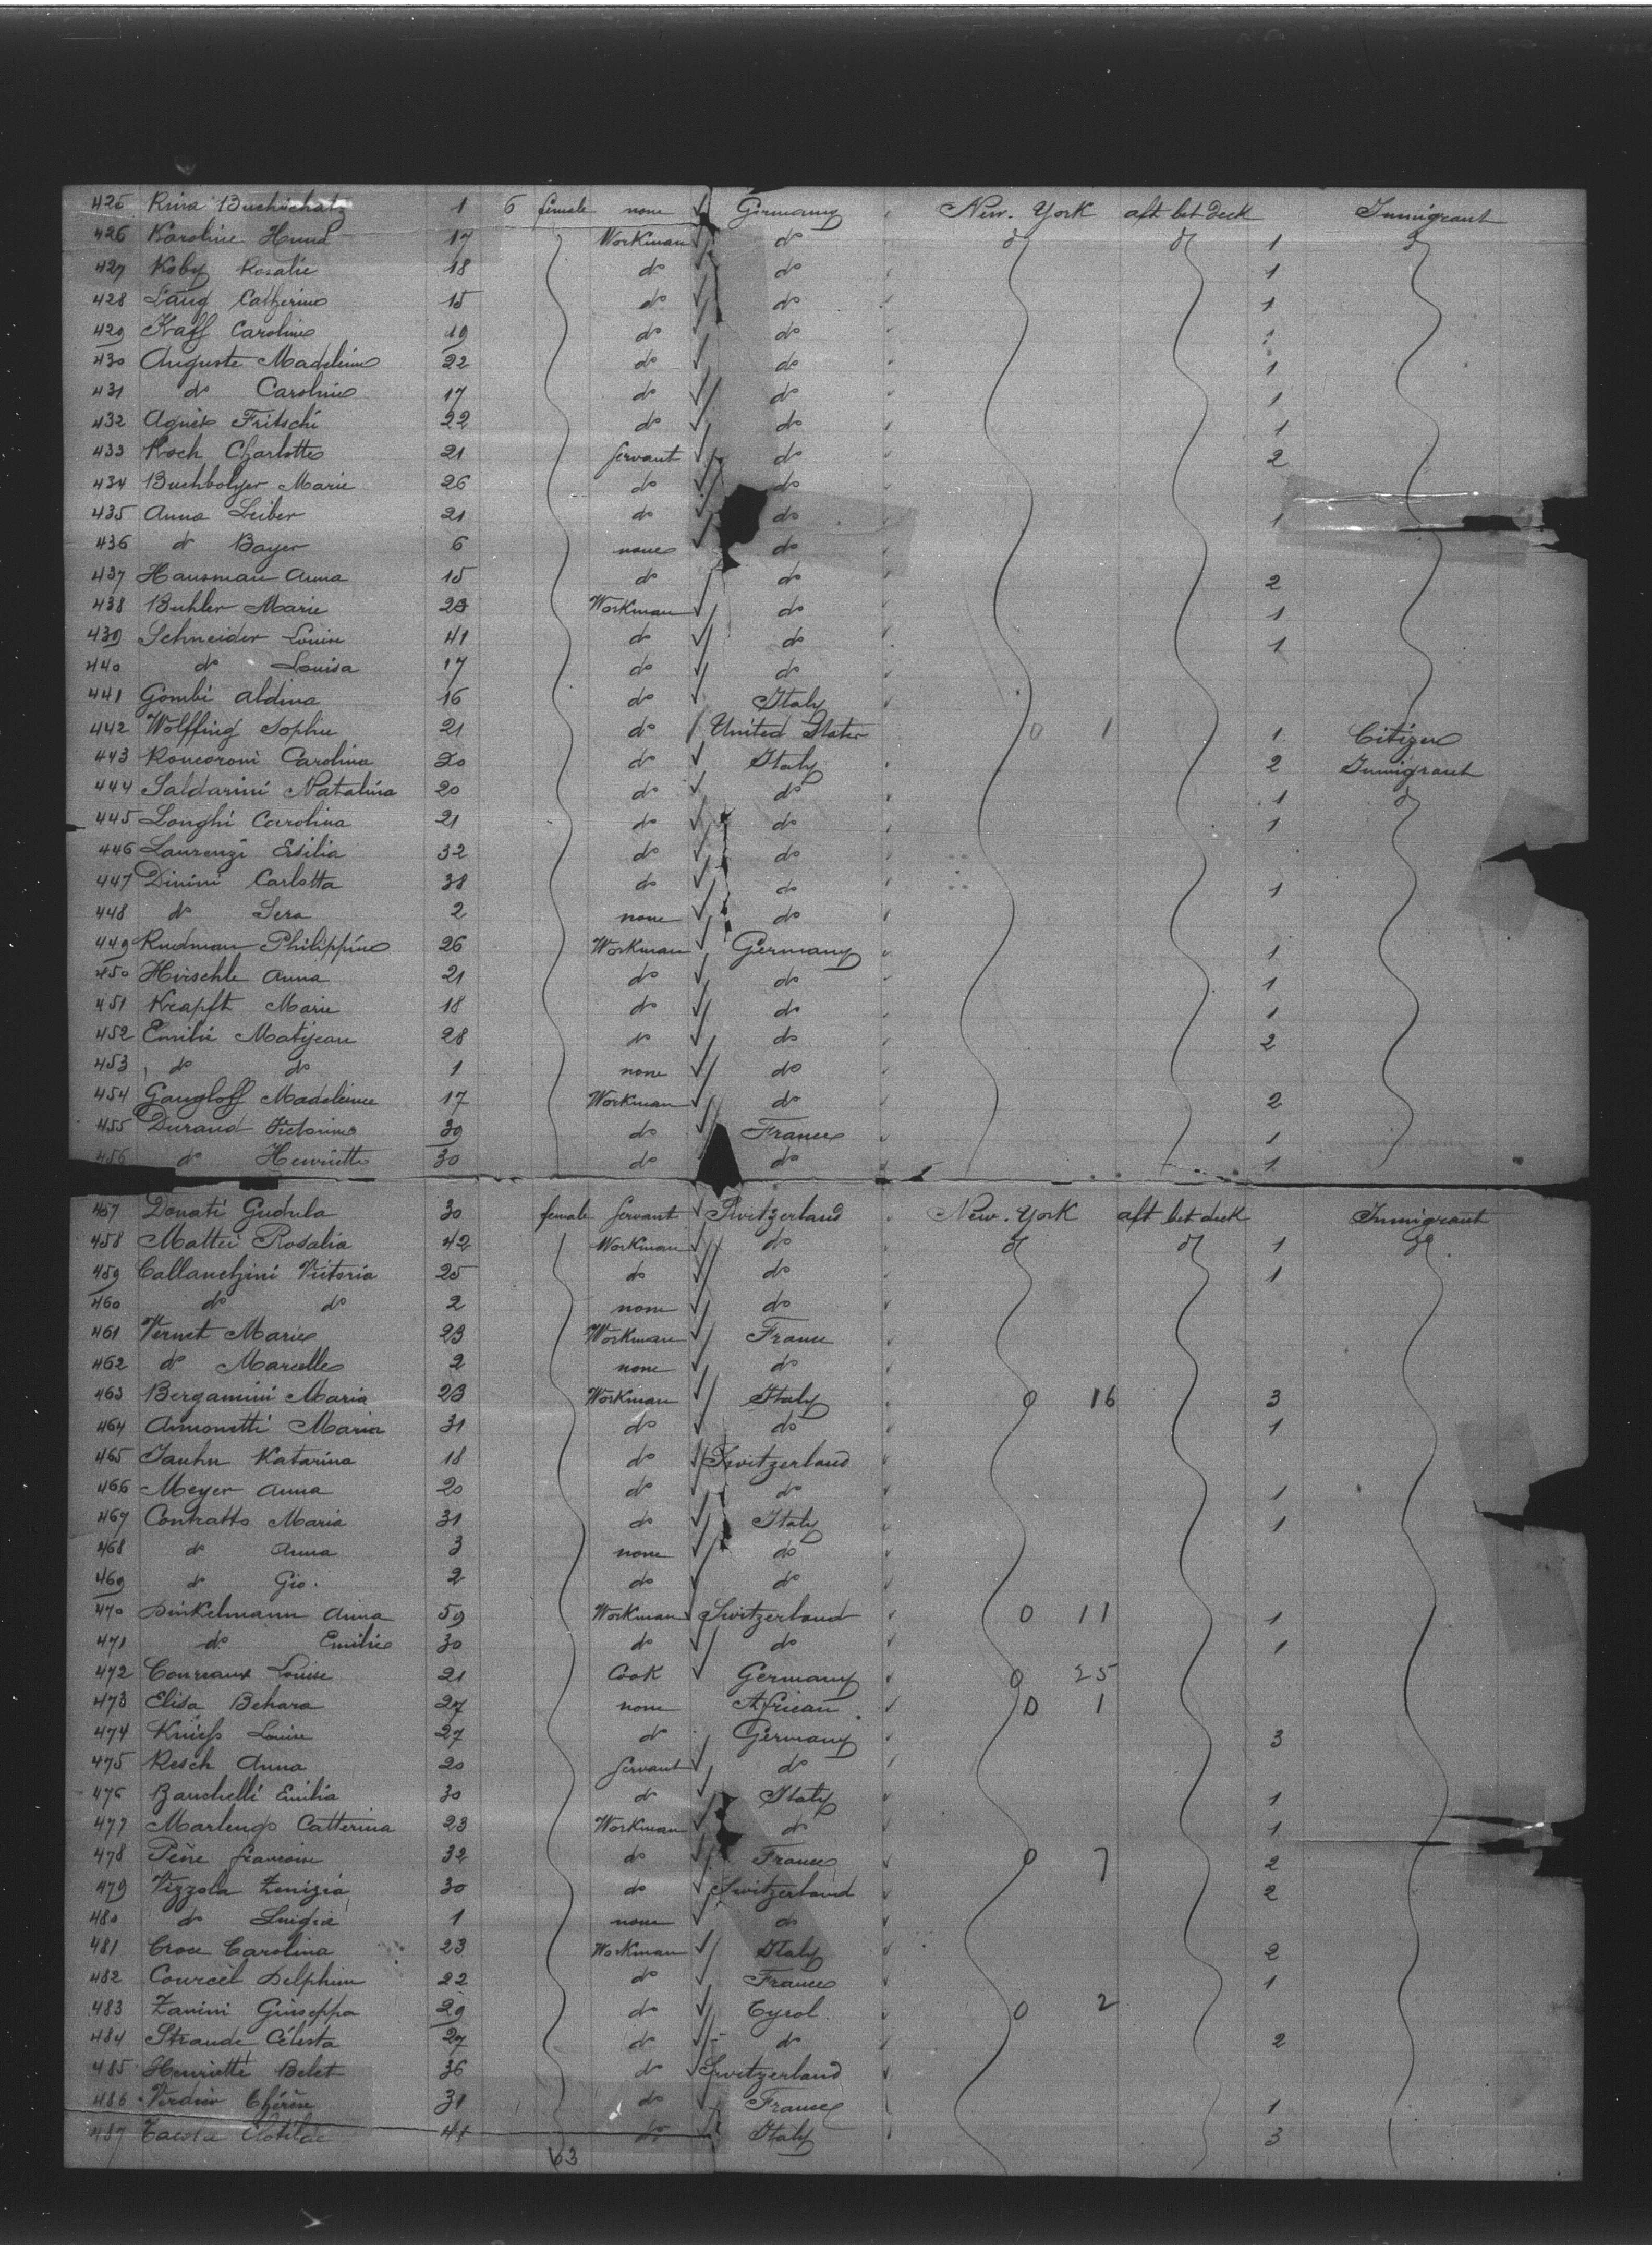 425 Rina Buchschatz 1 6 female none Germany New-York aft bet deck Immigrant
426 Karoline Hund 17 Workman do do do 1 do
427 Koby Rosalie 18 do do 1
428 Lang Catherine 15 do do 1
429 Kaff Caroline 19 do do
430 Auguste Madeleine 22 do do 1
431 do Caroline 17 do do 1
432 Agnes Fritschi 22 do do 1
433 Koch Charlotte 21 Servant do 2
434 Buchholzer Marie 26 do do
435 Anna Leiber 21 do do 1
436 do Bayer 6 none do
437 Hausman Anna 15 do do 2
438 Buhler Marie 23 Workman do 1
439 Schneider Louise 41 do do 1
440 do Louisa 17 do do
441 Gombi Aldina 16 do Italy
442 Wolffing Sophie 21 do United States 0 1 1 Citizen
443 Roncoroni Carolina 20 do Italy 2 Immigrant
444 Saldarini Natalina 20 do do 1 do
445 Longhi Carolina 21 do do 1
446 Laurenzi Ersilia 32 do do
447 Dinini Carlotta 38 do do 1
448 do Sera 2 none do
449 Rudman Philippine 26 Workman Germany 1
450 Hirschle Anna 21 do do 1
451 Krapft Marie 18 do do 1
452 Emilie Matyean 28 do do 2
453 do do 1 none do
454 Gangloff Madeleine 17 Workman do 2
455 Durand Victorine 39 do France 1
456 do Henriette 30 do do 1
457 Donati Gudula 30 female Servant Switzerland New-York aft bet deck Immigrant
458 Mattei Rosalia 42 Workman do do do 1 do
459 Callanchini Victoria 25 do do 1
460 do do 2 none do
461 Vernet Marie 23 Workman France
462 do Marcelle 2 none do
463 Bergamini Maria 23 Workman Italy 0 16 3
464 Antonetti Maria 31 do do 1
465 Jauhn Katarina 18 do Switzerland
466 Meyer Anna 20 do do 1
467 Contratto Maria 31 do Italy 1
468 do Anna 3 none do
469 do Gio. 2 do do
470 Dinkelmann Anna 59 Workman Switzerland 0 11 1
471 do Emilie 30 do do 1
472 Conreaux Louise 21 Cook Germany 0 25
473 Elisa Behara 27 none African 0 1
474 Knieß Louise 27 do Germany 3
475 Resch Anna 20 Servant do
476 Banchelli Emilia 30 do Italy 1
477 Marlengo Catterina 23 Workman do 1
478 Pène francoise 32 do France 0 7 2
479 Vizzola Zenizia 30 do Switzerland 2
480 do Luigia 1 none do
481 Croce Carolina 23 Workman Italy 2
482 Courcel Delphine 22 do France 1
483 Zanini Giuseppa 29 do Tyrol 0 2
484 Straude Célesta 27 do do 2
485 Henriette Belet 36 do Switzerland
486 Verdier 31 do France 1
487 Clotilde 41 do Italy 3
63